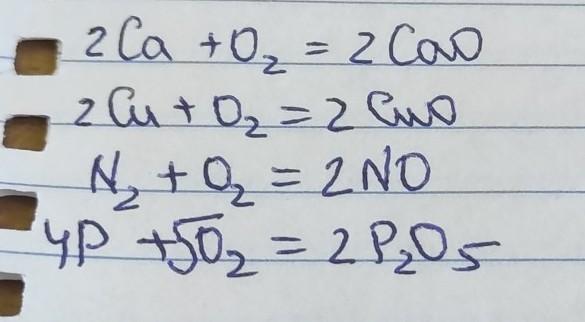 2Ca + O₂ = 2CaO
2Cu + O₂ = 2CuO
N₂ + O₂ = 2NO
4P + 5O₂ = 2P₂O₅